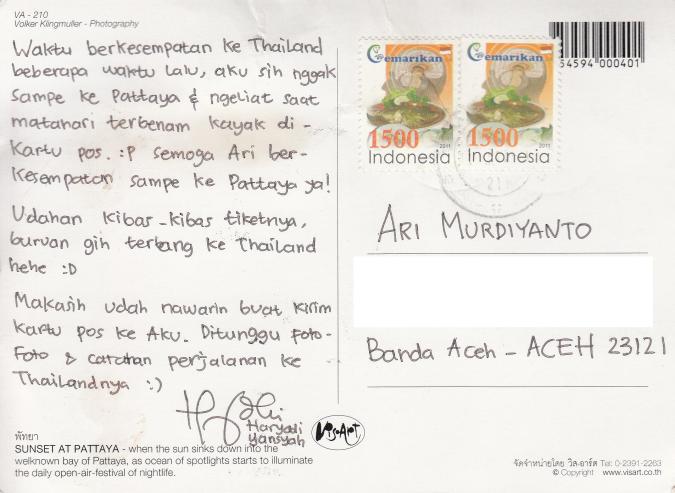 VA - 210
Volker Klingmuller - Photography
Waktu berkesempatan ke Thailand
beberapa waktu lalu, aku sih nggak
sampe ke Pattaya & ngeliat saat
matahari terbenam kayak di-
kartu pos. :P Semoga Ari ber-
kesempatan sampe ke Pattaya ya!
Udahan kibas-kibas tiketnya,
buruan gih terbang ke Thailand
hehe :D
Makasih udah nawarin buat kirim
kartu pos ke Aku. Ditunggu foto-
foto & catatan perjalanan ke
Thailandnya :)
Haryadi
Yansyah
VisArt
พัทยา
SUNSET AT PATTAYA - when the sun sinks down into the
welknown bay of Pattaya, as ocean of spotlights starts to illuminate
the daily open-air-festival of nightlife.
Gemarikan
1500
2011
Indonesia
Gemarikan
1500
2011
Indonesia
54594 000401
21
ARI MURDIYANTO
Banda Aceh - ACEH 23121
จัดจำหน่ายโดย วิส-อาร์ต Tel: 0-2391-2263
© Copyright www.visart.co.th